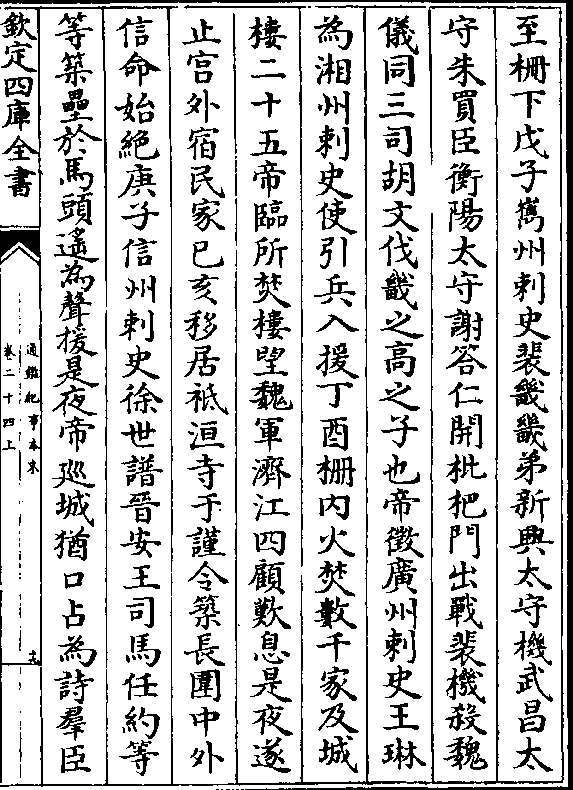 至柵下戊子嶲州刺史裴畿畿弟新興太守機武昌太
守朱買臣衡陽太守謝答仁開枇杷門出戰裴機殺魏
儀同三司胡文伐畿之高之子也帝徵廣州刺史王琳
為湘州刺史使引兵入援丁酉柵内火焚數千家及城
樓二十五帝臨所焚樓望魏軍濟江四顧歎息是夜遂
止宫外宿民家己亥移居祇洹寺于謹令築長圍中外
信命始絶庚子信州刺史徐世譜晉安王司馬任約等
等築壘於馬頭遙為聲援是夜帝廵城猶口占為詩羣臣
欽定四庫全書
通鑑紀事本末
卷二十四上
十九